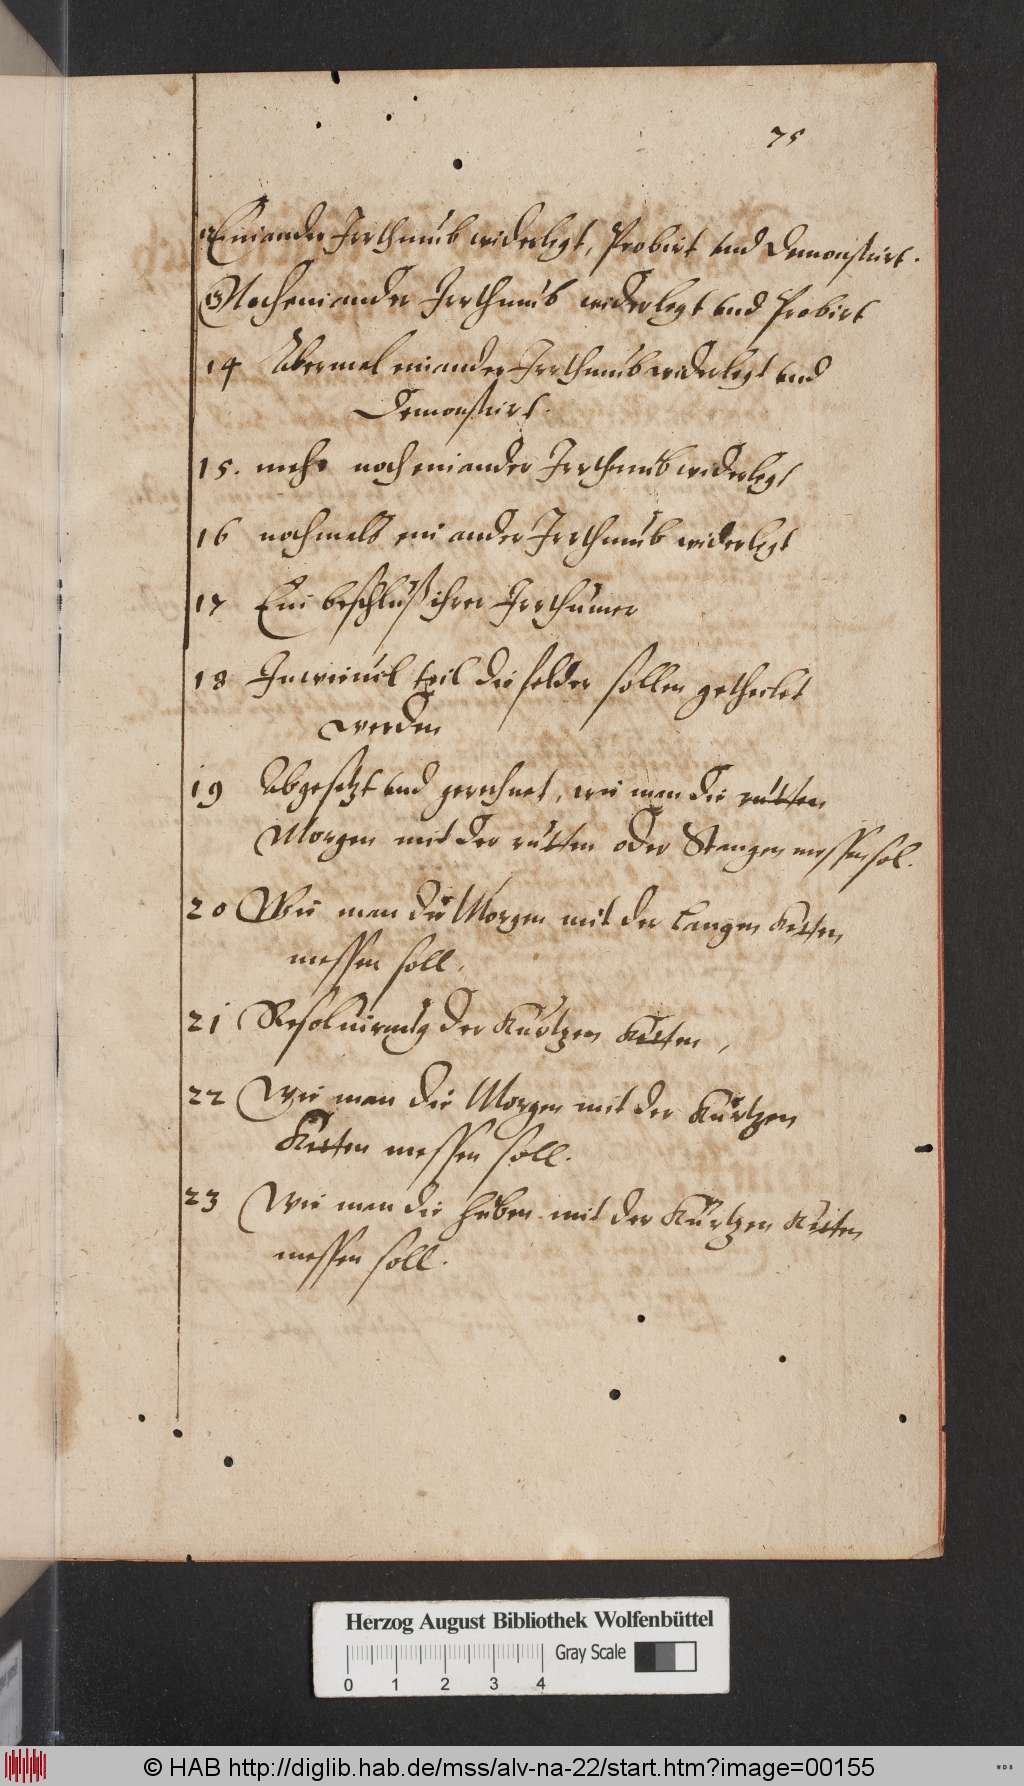 75
Ein ander Irrthumb widerlegt, Probirt vnd Demonstrirt.
Noch ein ander Irrthumb widerlegt vnd Probirt
14 Abermal ein ander Irrthumb widerlegt vnd
Demonstrirt.
15. mehr noch ein ander Irrthumb widerlegt
16 nochmals ein ander Irrthumb widerlegt
17 Ein beschluß ihrer Irrthumer
18 In wieuiel teil die felder sollen getheilet
werden
19 Abgesetzt vnd gerechnet, wie man die rutten
Morgen mit der rutten oder Stangen messen sol.
20 Wie man die Morgen mit der langen Ketten
messen soll.
21 Resoluirung der Kurtzen Ketten,
22 Wie man die Morgen mit der Kurtzen
Ketten messen soll.
23 Wie man die huben mit der Kurtzen Ketten
messen soll.
Herzog August Bibliothek Wolfenbüttel
Gray Scale
0 1 2 3 4
© HAB http://diglib.hab.de/mss/alv-na-22/start.htm?image=00155